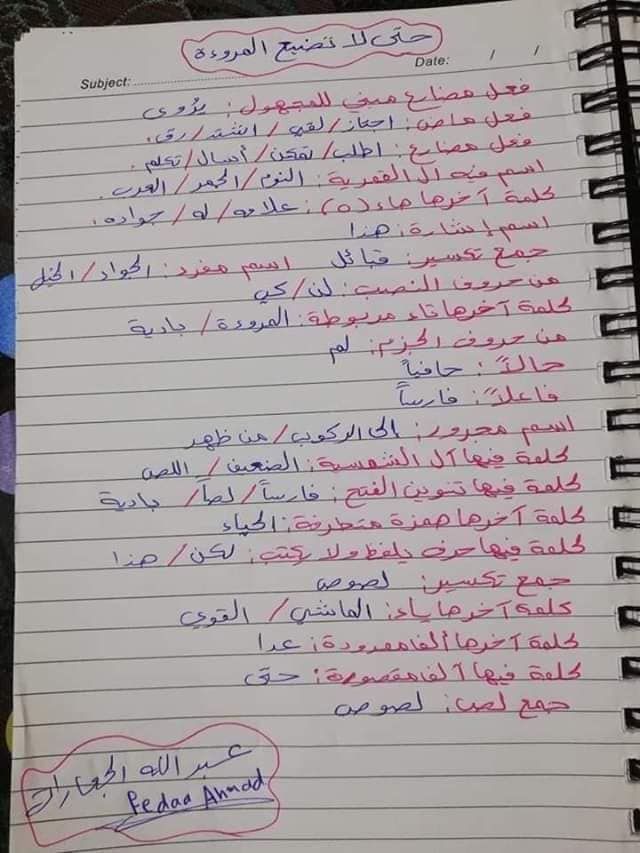 حتى لا تضيع المروءة
Subject: Date: / /
فعل مضارع مبني للمجهول: يؤوى
فعل ماض: اجتاز / لقي / اشتد / رق.
فعل مضارع: اطلب / تمكن / أسال / تكلم.
اسم فيه ال القمرية: النوم / الحمر / العرب.
كلمة آخرها هاء (ه): علامه / له / جواده.
اسم إشارة: هذا
جمع تكسير: قبائل اسم مفرد: الجواد / الخيل
من حروف النصب: لن / كي
كلمة آخرها تاء مربوطة: المروءة / بادية
من حروف الجزم: لم
حالاً: حافياً
فاعلاً: فارساً
اسم مجرور: إلى الركوب / من ظهر
كلمة فيها آل الشمسية: الضعيف / اللص
كلمة فيها تنوين الفتح: فارساً / لصاً / بادية
كلمة آخرها همزة متطرفة: الحياء
كلمة فيها حرف يلفظ ولا يكتب: لكن / هذا
جمع تكسير: لصوص
كلمة آخرها ياء: الماشي / القوي
كلمة آخرها ألف ممدودة: عدا
كلمة فيها ألف مقصورة: حتى
جمع لص: لصوص
عبد الله الجعارات
Fedaa Ahmad